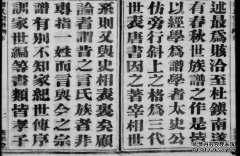 述最為賅洽至杜鎮南遂
有春秋世族譜之作是葢
以經學為譜學者太史公
仿旁行斜上之格為三代
世表唐書因之表宰相世
系則又與史相表裏矣顧
論者謂昔之言氏族皆非
專指一姓而言與今之宗
譜有別不知家紀世傳序
訓家世編等書類皆孝子